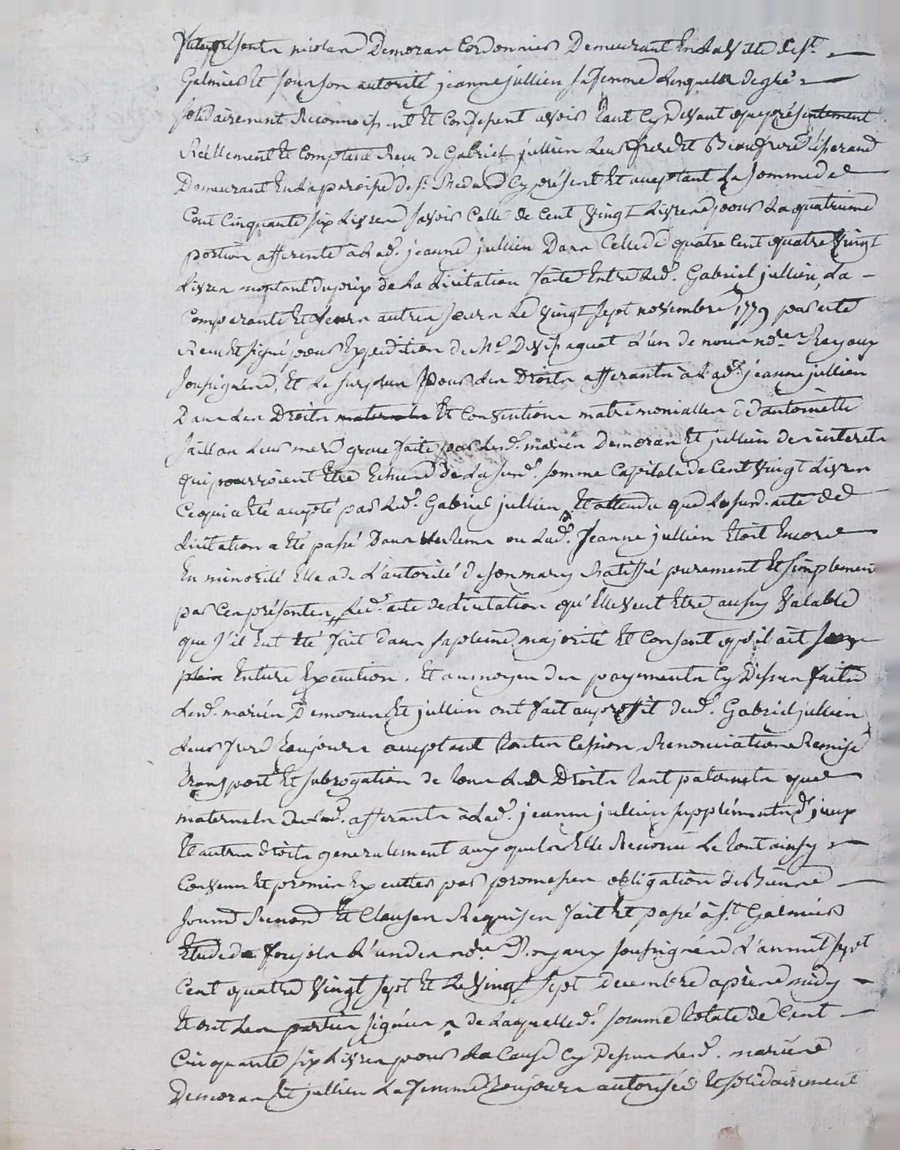 nicolas Demoran Cordonnier Demeurant En la Ville de st
Galmier Et sous son autorité jeanne jullien sa femme Lesquels de gré
solidairement Reconnoissent Et Confessent avoir tant Cy devant que présentement
Réellement Et Comptant Reçu de Gabriel jullien Leur frere Et Beaufrere
Demeurant En la paroisse de st Medard Cy présent Et aceptant La somme de
Cent Cinquante six Livres savoir Celle de Cent Vingt Livres pour La quatrieme
portion afferente à Lad. jeanne jullien Dans Celle de quatre Cent quatre Vingt
Livres montant du prix de La Licitation faite Entre Led. Gabriel jullien, La
Comparante Et Leurs autres sœurs Le Vingt sept novembre 1779 par acte
Reçu Et signé pour Expedition de Me L'un de nous nores Royaux
soussignés, Et Le surplus pour Les Droits afferants à Lad. jeanne jullien
Dans Les Droits Et Conventions matrimonialles d'antoinette
jaillon Leur mere grace faite par Lesd. mariés Demoran Et jullien des interets
qui pourroient Etre Echus de La susd. somme Capitale de Cent Vingt Livres
Ce qui a Eté accepté par Led. Gabriel jullien, Et attendu que Le susd. acte de
Licitation a Eté passé Dans un tems ou Lad. Jeanne jullien Etoit Encore
En minorité Elle a de L'autorité de son mary Ratiffié purement Et simplement
par Ces présentes Led. acte de Licitation qu'Elle veut Etre aussy Valable
que s'il Eut Eté fait dans sa pleine majorité Et Consent qu'il ait sa
Entiere Execution. Et au moyen des payements Cy Dessus faits
Lesd. mariés Demoran Et jullien ont fait au profit dud. Gabriel jullien
Leur frere toujours acceptant toutes Cession Renonciation Remise
transport Et subrogation de tous Les Droits tant paternels que
maternels afferants à Lad. jeanne jullien supplément d'iceux
Et autres droits generalement auxquels Elle Renonce Le tout ainsy
Convenu Et promis Executer par promesses obligation de Biens
soumis Renon. Et Clauses Requises fait Et passé à st Galmier
Etude de L'un des nores Royaux soussignés L'an mil sept
Cent quatre Vingt sept Et Le Vingt sept Decembre après midy
Et ont Les parties signées de Laquelle d. somme totale de Cent
Cinquante six Livres pour La Cause Cy Dessus Lesd. mariés
Demoran Et jullien La femme toujours autorisée Et solidairement